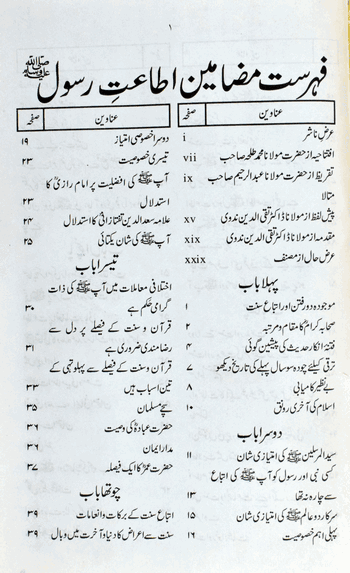 ۱
فہرست مضامین اطاعتِ رسول ﷺ
عناوین صفحہ
عرض ناشر i
افتتاحیہ از حضرت مولانا محمد طلحہ صاحب vii
تقریظ از حضرت مولانا عبدالرحیم صاحب ix
متالا
پیش لفظ از مولانا ڈاکٹر تقی الدین ندوی xv
مقدمہ از مولانا ڈاکٹر تقی الدین ندوی xix
عرض حال از مصنف xxix
پہلا باب
موجودہ دور فتن اور اتباع سنت ۱
صحابہ کرام کا مقام و مرتبہ ۲
فتنۂ انکار حدیث کی پیشین گوئی ۴
ترقی کیلئے چودہ سو سال پہلے کی تاریخ دیکھو ۷
بے نظیر کامیابی ۸
اسلام کی آخری رونق ۱۰
دوسرا باب
سید المرسلین ﷺ کی امتیازی شان ۱۱
کسی نبی اور رسول کو آپ ﷺ کی اتباع
سے چارہ نہ تھا ۱۳
سرکار دو عالم ﷺ کی امتیازی شان ۱۵
پہلی اہم خصوصیت ۱۶
عناوین صفحہ
دوسرا خصوصی امتیاز ۱۹
تیسری خصوصیت ۲۳
آپ ﷺ کی افضلیت پر امام رازیؒ کا
استدلال ۲۳
علامہ سعد الدین تفتازانی کا استدلال ۲۴
آپ ﷺ کی شان یکتائی ۲۵
تیسرا باب
اختلافی معاملات میں آپ ﷺ کی ذات
گرامی حکم ہے ۳۰
قرآن و سنت کے فیصلے پر دل سے
رضامندی ضروری ہے ۳۱
قرآن و سنت کے فیصلے سے پہلو تہی کے
تین اسباب ہیں ۳۳
سچے مسلمان ۳۵
حضرت عبادہؓ کی وصیت ۳۶
مدار ایمان ۳۶
حضرت عمرؓ کا ایک فیصلہ ۳۷
چوتھا باب
اتباع سنت کے برکات و انعامات ۳۹
سنت سے اعراض کا دنیا و آخرت میں وبال ۳۹